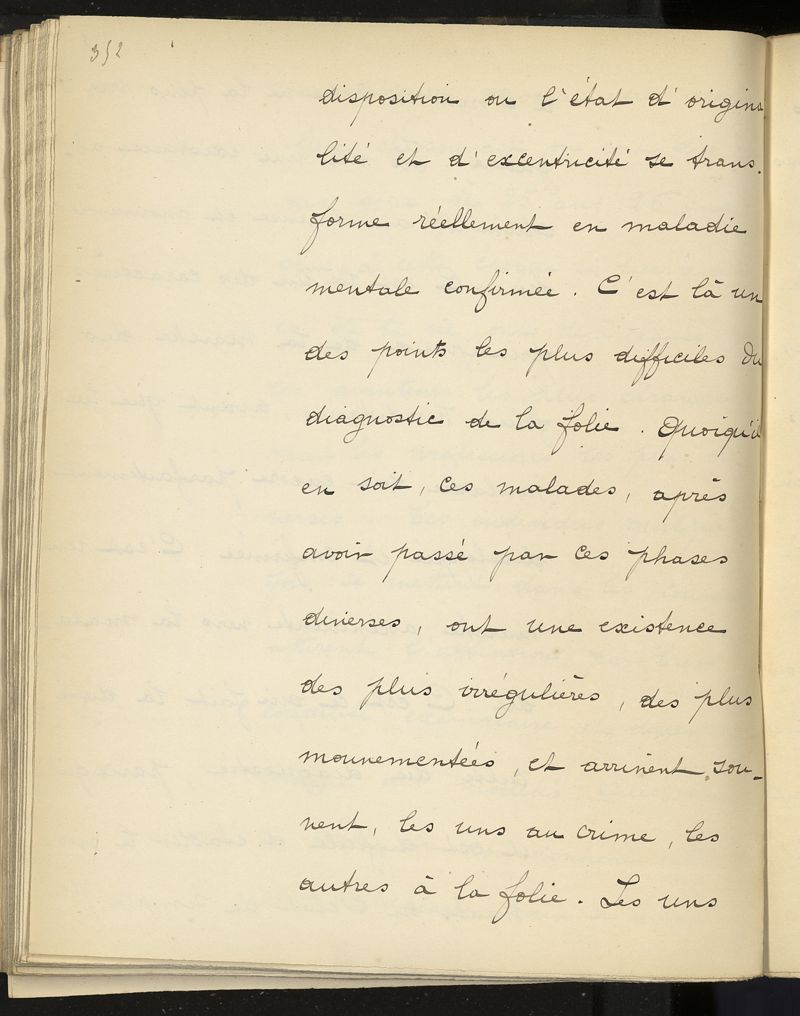 352
disposition ou l'état d'origina
lité et d'excentricité se trans-
forme réellement en maladie
mentale confirmée. C'est là un
des points les plus difficiles du
diagnostic de la folie. Quoiqu'il
en soit, ces malades, après
avoir passé par ces phases
diverses, ont une existence
des plus irrégulières, des plus
mouvementées, et arrivent sou-
vent, les uns au crime, les
autres à la folie. Les uns